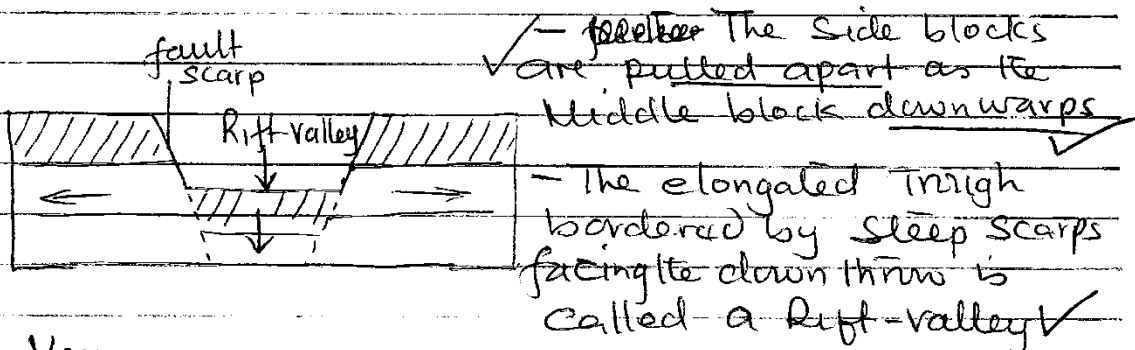 fault
scarp
Rift-valley
- The Side blocks
are pulled apart as the
Middle block downwarps
- The elongated Trough
bordered by Steep Scarps
facing the down throw is
called a Rift-valley